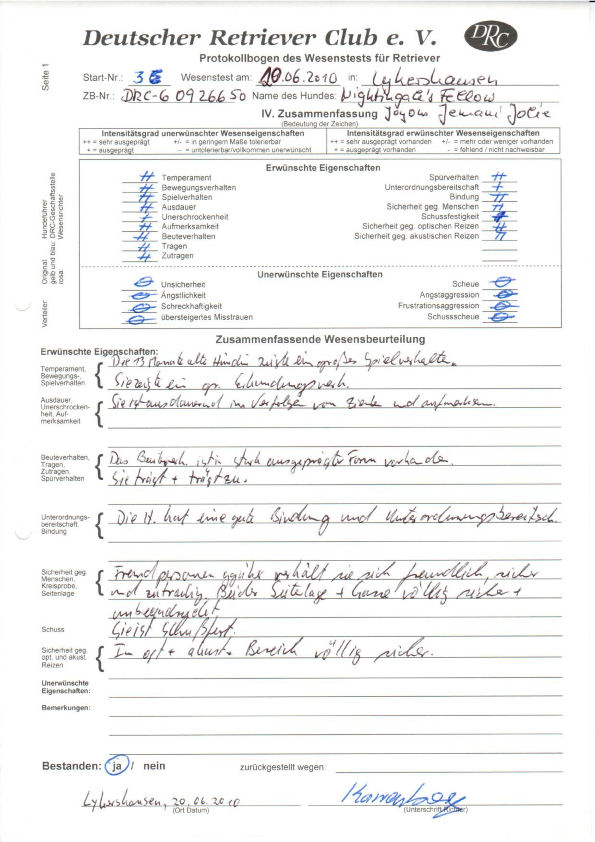 Deutscher Retriever Club e. V.
DRC
Protokollbogen des Wesenstests für Retriever
Seite 1
Start-Nr.: 36 Wesenstest am: 20.06.2010 in: Lykershausen
ZB-Nr.: DRC-G 0926650 Name des Hundes: Nightingale's Fellow
IV. Zusammenfassung Joyous Jemani Jolie
(Bedeutung der Zeichen)
Intensitätsgrad unerwünschter Wesenseigenschaften
++ = sehr ausgeprägt +/- = in geringem Maße tolerierbar
+ = ausgeprägt -- = untolerierbar/vollkommen unerwünscht
Intensitätsgrad erwünschter Wesenseigenschaften
++ = sehr ausgeprägt vorhanden +/- = mehr oder weniger vorhanden
+ = ausgeprägt vorhanden - = fehlend / nicht nachweisbar
Verteiler: Original: Hundeführer
gelb und blau: DRC-Geschäftsstelle
rosa: Wesensrichter
Erwünschte Eigenschaften
++ Temperament
++ Bewegungsverhalten
++ Spielverhalten
++ Ausdauer
+ Unerschrockenheit
++ Aufmerksamkeit
++ Beuteverhalten
++ Tragen
++ Zutragen
Spürverhalten ++
Unterordnungsbereitschaft +
Bindung ++
Sicherheit geg. Menschen ++
Schussfestigkeit
Sicherheit geg. optischen Reizen ++
Sicherheit geg. akustischen Reizen ++
Unerwünschte Eigenschaften
Unsicherheit
Ängstlichkeit
Schreckhaftigkeit
übersteigertes Misstrauen
Scheue
Angstaggression
Frustrationsaggression
Schussscheue
Zusammenfassende Wesensbeurteilung
Erwünschte Eigenschaften:
Temperament,
Bewegungs-,
Spielverhalten
Die 13 Monate alte Hündin zeigte ein großes Spielverhalten.
Sie zeigte ein gr. Erkundungsverh.
Ausdauer,
Unerschrocken-
heit, Auf-
merksamkeit
Sie ist ausdauernd im Verfolgen von Zielen und aufmerksam.
Beuteverhalten,
Tragen,
Zutragen,
Spürverhalten
Das Beuteverh. ist in stark ausgeprägter Form vorhanden.
Sie trägt + trägt zu.
Unterordnungs-
bereitschaft,
Bindung
Die H. hat eine gute Bindung und Unterordnungsbereitsch.
Sicherheit geg.
Menschen,
Kreisprobe,
Seitenlage
Fremdpersonen ggüber verhält sie sich freundlich, sicher
und zutraulich. Bei der Seitenlage + Gasse völlig sicher +
unbeeindruckt
Schuss
Sie ist schußfest.
Sicherheit geg.
opt. und akust.
Reizen
Im opt + akust. Bereich völlig sicher.
Unerwünschte
Eigenschaften:
Bemerkungen:
Bestanden: ja / nein zurückgestellt wegen:
Lykershausen, 20.06.2010
(Ort Datum)
(Unterschrift Richter)